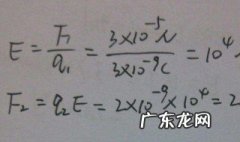 E = F₁/q₁ = 3×10⁻⁵N/3×10⁻⁹C = 10⁴
F₂ = q₂E = 2×10⁻⁹×10⁴ = 2
广东龙网